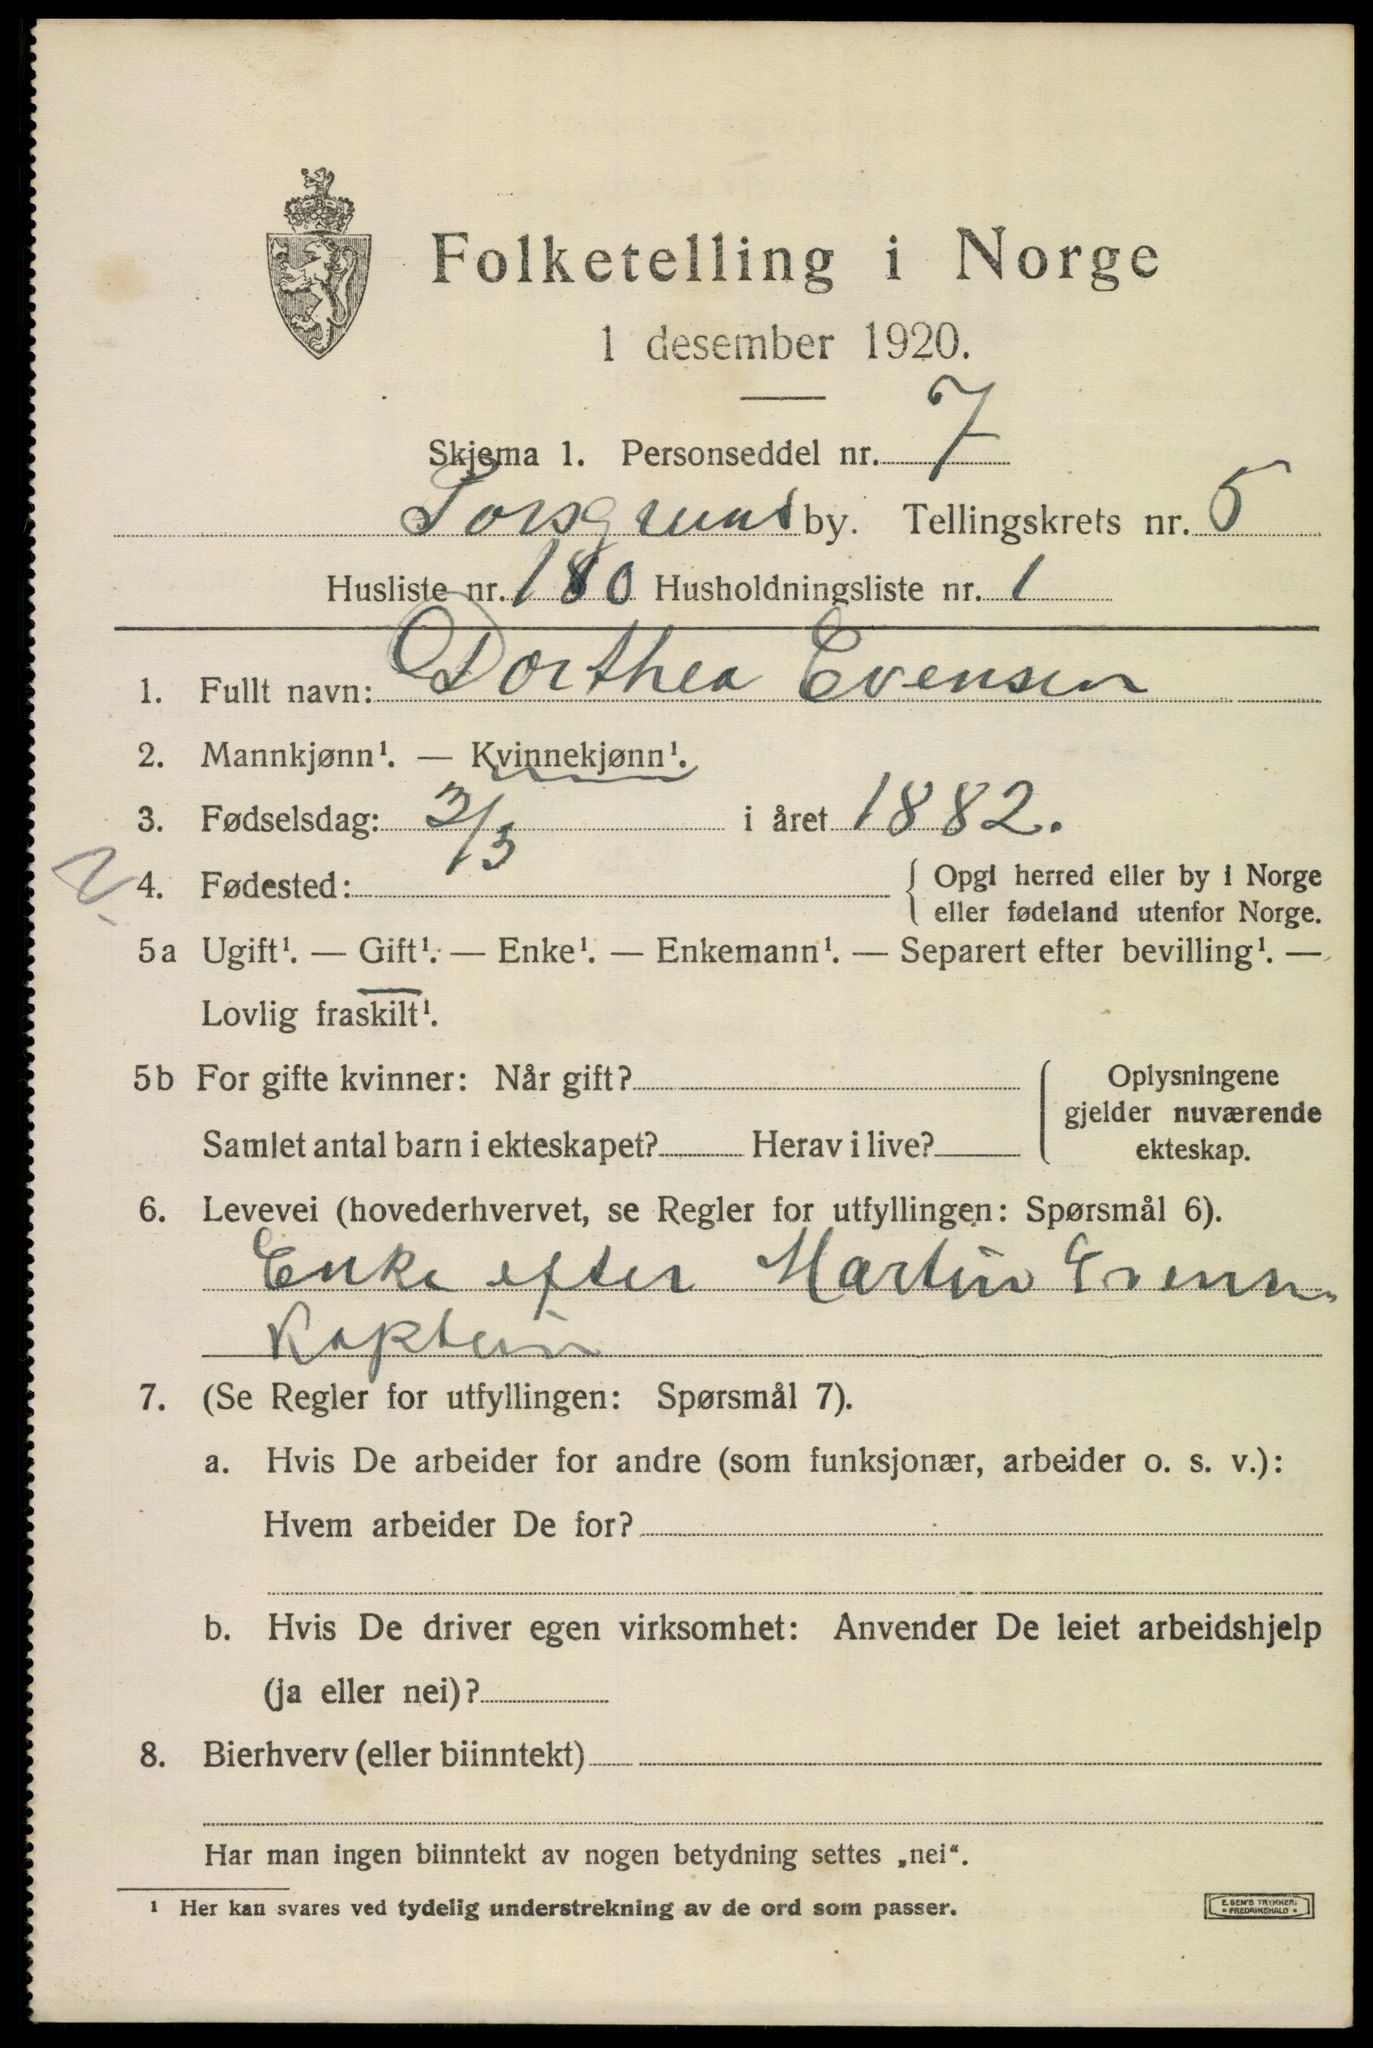 Folketelling i Norge
1 desember 1920.
Skjema 1. Personseddel nr. 7
Porsgrund by. Tellingskrets nr. 5
Husliste nr. 180 Husholdningsliste nr. 1
1. Fullt navn: Dorthea Evensen
2. Mannkjønn¹. — Kvinnekjønn¹.
3. Fødselsdag: 3/3 i året 1882.
4. Fødested: Opgi herred eller by i Norge
eller fødeland utenfor Norge.
5a Ugift¹. — Gift¹. — Enke¹. — Enkemann¹. — Separert efter bevilling¹. —
Lovlig fraskilt¹.
5b For gifte kvinner: Når gift?
Samlet antal barn i ekteskapet? Herav i live?
Oplysningene
gjelder nuværende
ekteskap.
6. Levevei (hovederhvervet, se Regler for utfyllingen: Spørsmål 6).
Enke efter Martin
Kaptein
7. (Se Regler for utfyllingen: Spørsmål 7).
a. Hvis De arbeider for andre (som funksjonær, arbeider o. s. v.):
Hvem arbeider De for?
b. Hvis De driver egen virksomhet: Anvender De leiet arbeidshjelp
(ja eller nei)?
8. Bierhverv (eller biinntekt)
Har man ingen biinntekt av nogen betydning settes „nei“.
¹ Her kan svares ved tydelig understrekning av de ord som passer.
E. SEM'S TRYKKERI
FREDRIKSHALD